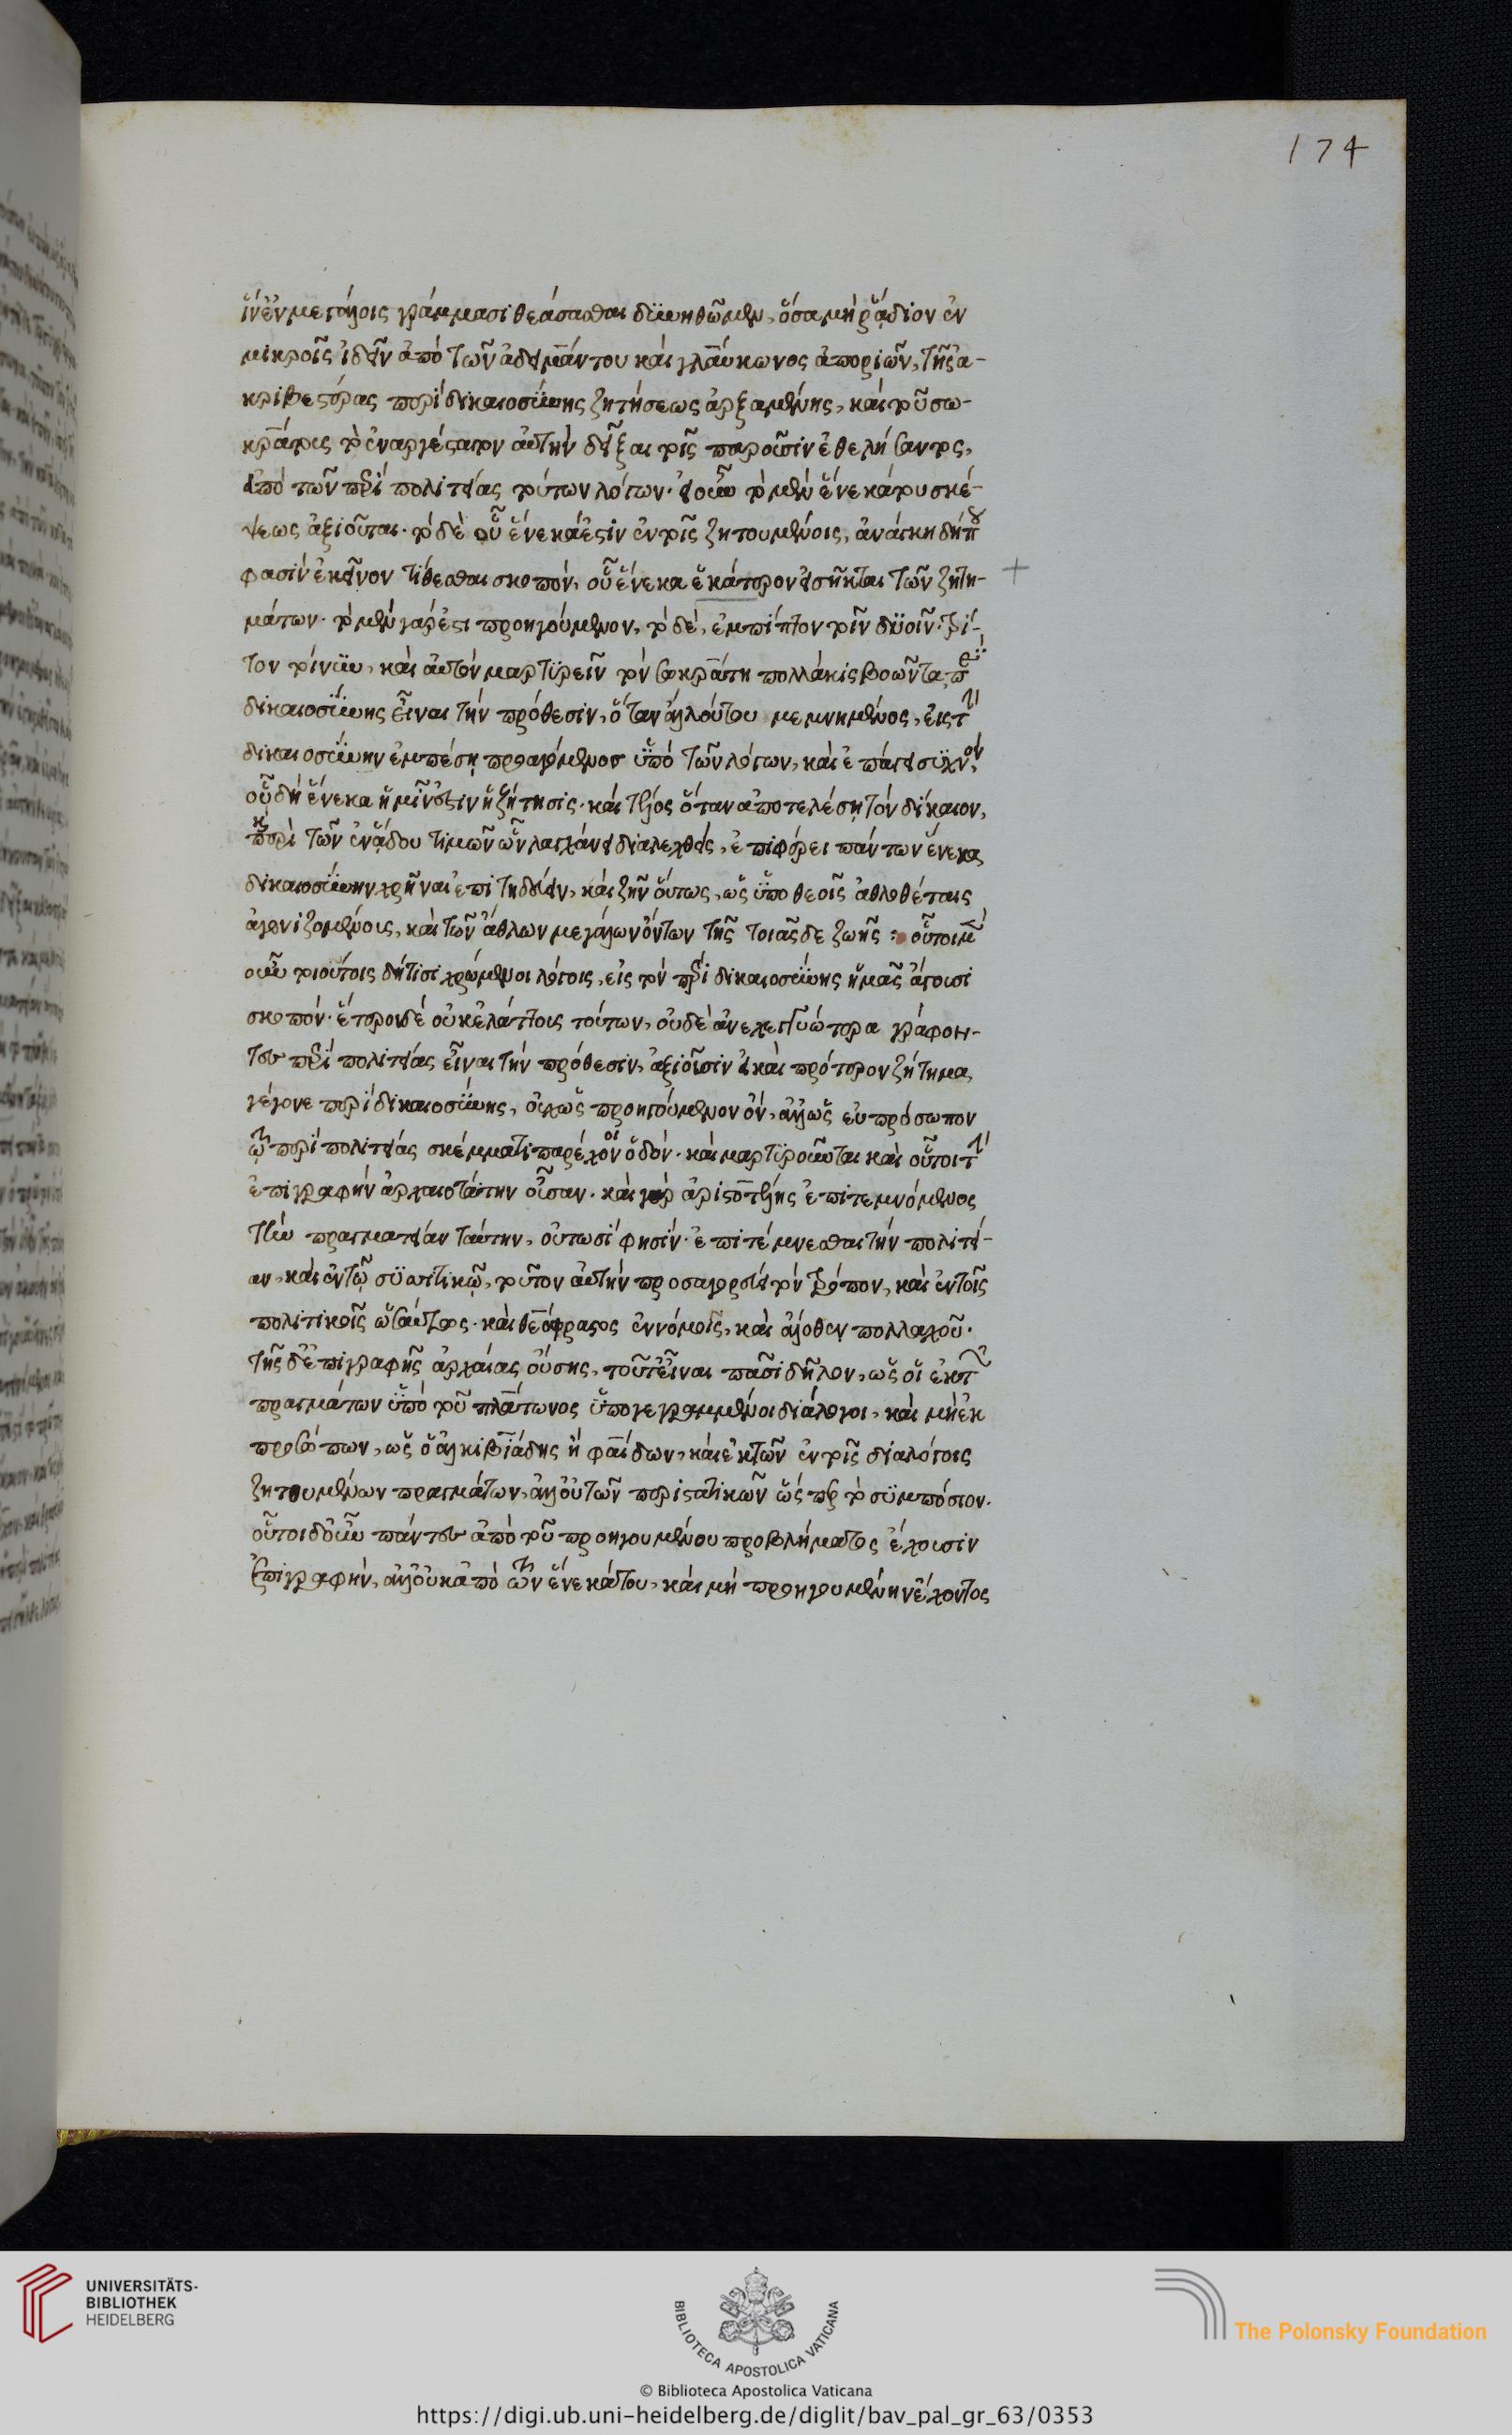 174
ἵν' ἐν μεγάλοις γράμμασι θεάσασθαι δυνηθῶμεν, ὅσα μὴ ῥᾴδιον ἐν
μικροῖς ἰδεῖν ἀπὸ τῶν ἀδειμάντου καὶ γλαύκωνος ἀποριῶν, τῆς ἀ-
κριβεστέρας περὶ δικαιοσύνης ζητήσεως ἀρξαμένης, καὶ τοῦ σω-
κράτους τὸ ἐναργέστατον αὐτὴν δεῖξαι τοῖς παροῦσιν ἐθελήσαντος,
ἀπὸ τῶν περὶ πολιτείας τούτων λόγων. εἰ οὖν τὸ μὲν ἕνεκά του σκέ-
ψεως ἀξιοῦται. τὸ δὲ οὗ ἕνεκά ἐστιν ἐν τοῖς ζητουμένοις, ἀνάγκη δήπου
φασὶν ἐκεῖνον τίθεσθαι σκοπὸν, οὗ ἕνεκα ἑκάτερον εἰσῆκται τῶν ζητη-
μάτων. τὸ μὲν γάρ ἐστι προηγούμενον, τὸ δὲ, ἐμπίπτον τοῖν δυοῖν. τρί-
τον τοίνυν, καὶ αὐτὸν μαρτυρεῖν τὸν σωκράτη πολλάκις βοῶντα, περὶ
δικαιοσύνης εἶναι τὴν πρόθεσιν, ὅταν ἄλλου του μεμνημένος, εἰς τὴν
δικαιοσύνην ἐμπέσῃ προαγόμενος ὑπὸ τῶν λόγων, καὶ ἐπάγει συχνὸν,
οὗ δὴ ἕνεκα ἡμῖν ἐστιν ἡ ζήτησις. καὶ τέλος ὅταν ἀποτελέσῃ τὸν δίκαιον,
καὶ περὶ τῶν ἐν ᾅδου τιμῶν ὧν λαγχάνει διαλεχθεὶς, ἐπιφέρει πάντων ἕνεκα
δικαιοσύνην χρῆναι ἐπιτηδεύειν, καὶ ζῆν οὕτως, ὡς ὑπὸ θεοῖς ἀθλοθέταις
ἀγωνιζομένοις, καὶ τῶν ἄθλων μεγάλων ὄντων τῆς τοιᾶσδε ζωῆς : οὗτοι μὲν
οὖν τοιούτοις δή τισι χρώμενοι λόγοις, εἰς τὸν περὶ δικαιοσύνης ἡμᾶς ἄγουσι
σκοπόν. ἕτεροι δὲ οὐκ ἐλάττους τούτων, οὐδὲ ἀνεχεγγυώτερα γράφον-
τες περὶ πολιτείας εἶναι τὴν πρόθεσιν, ἀξιοῦσιν εἰ καὶ πρότερον ζήτημα
γέγονε περὶ δικαιοσύνης, οὐχ ὡς προηγούμενον ὂν, ἀλλ' ὡς εὐπρόσωπον
τῷ περὶ πολιτείας σκέμματι παρέχον ὁδόν. καὶ μαρτύρονται καὶ οὗτοι τὴν
ἐπιγραφὴν ἀρχαιοτάτην οὖσαν. καὶ γὰρ ἀριστοτέλης ἐπιτεμνόμενος
τὴν πραγματείαν ταύτην, οὑτωσί φησιν. ἐπιτέμνεσθαι τὴν πολιτεί-
αν, καὶ ἐν τῷ συσσιτικῷ, τοῦτον αὐτὴν προσαγορεύει τὸν τρόπον, καὶ ἐν τοῖς
πολιτικοῖς ὡσαύτως. καὶ θεόφραστος ἐν νόμοις, καὶ ἄλλοθεν πολλαχοῦ.
τῆς δ' ἐπιγραφῆς ἀρχαίας οὔσης, τοῦτ' εἶναι πᾶσι δῆλον, ὡς οἱ ἐκ τῶν
πραγμάτων ὑπὸ τοῦ πλάτωνος ὑπογεγραμμένοι διάλογοι, καὶ μὴ ἐκ
προσώπων, ὡς ὁ ἀλκιβιάδης ἢ φαίδων, καὶ ἐκ τῶν ἐν τοῖς διαλόγοις
ζητουμένων πραγμάτων, ἀλλ' οὐ τῶν περιστατικῶν ὥσπερ τὸ συμπόσιον.
οὗτοι δ' οὖν πάντες ἀπὸ τοῦ προηγουμένου προβλήματος ἔχουσιν
ἐπιγραφὴν, ἀλλ' οὐκ ἀπὸ τῶν ἕνεκά του, καὶ μὴ προηγουμένην ἔχοντος
UNIVERSITÄTS-
BIBLIOTHEK
HEIDELBERG
BIBLIOTECA APOSTOLICA VATICANA
© Biblioteca Apostolica Vaticana
The Polonsky Foundation
https://digi.ub.uni-heidelberg.de/diglit/bav_pal_gr_63/0353